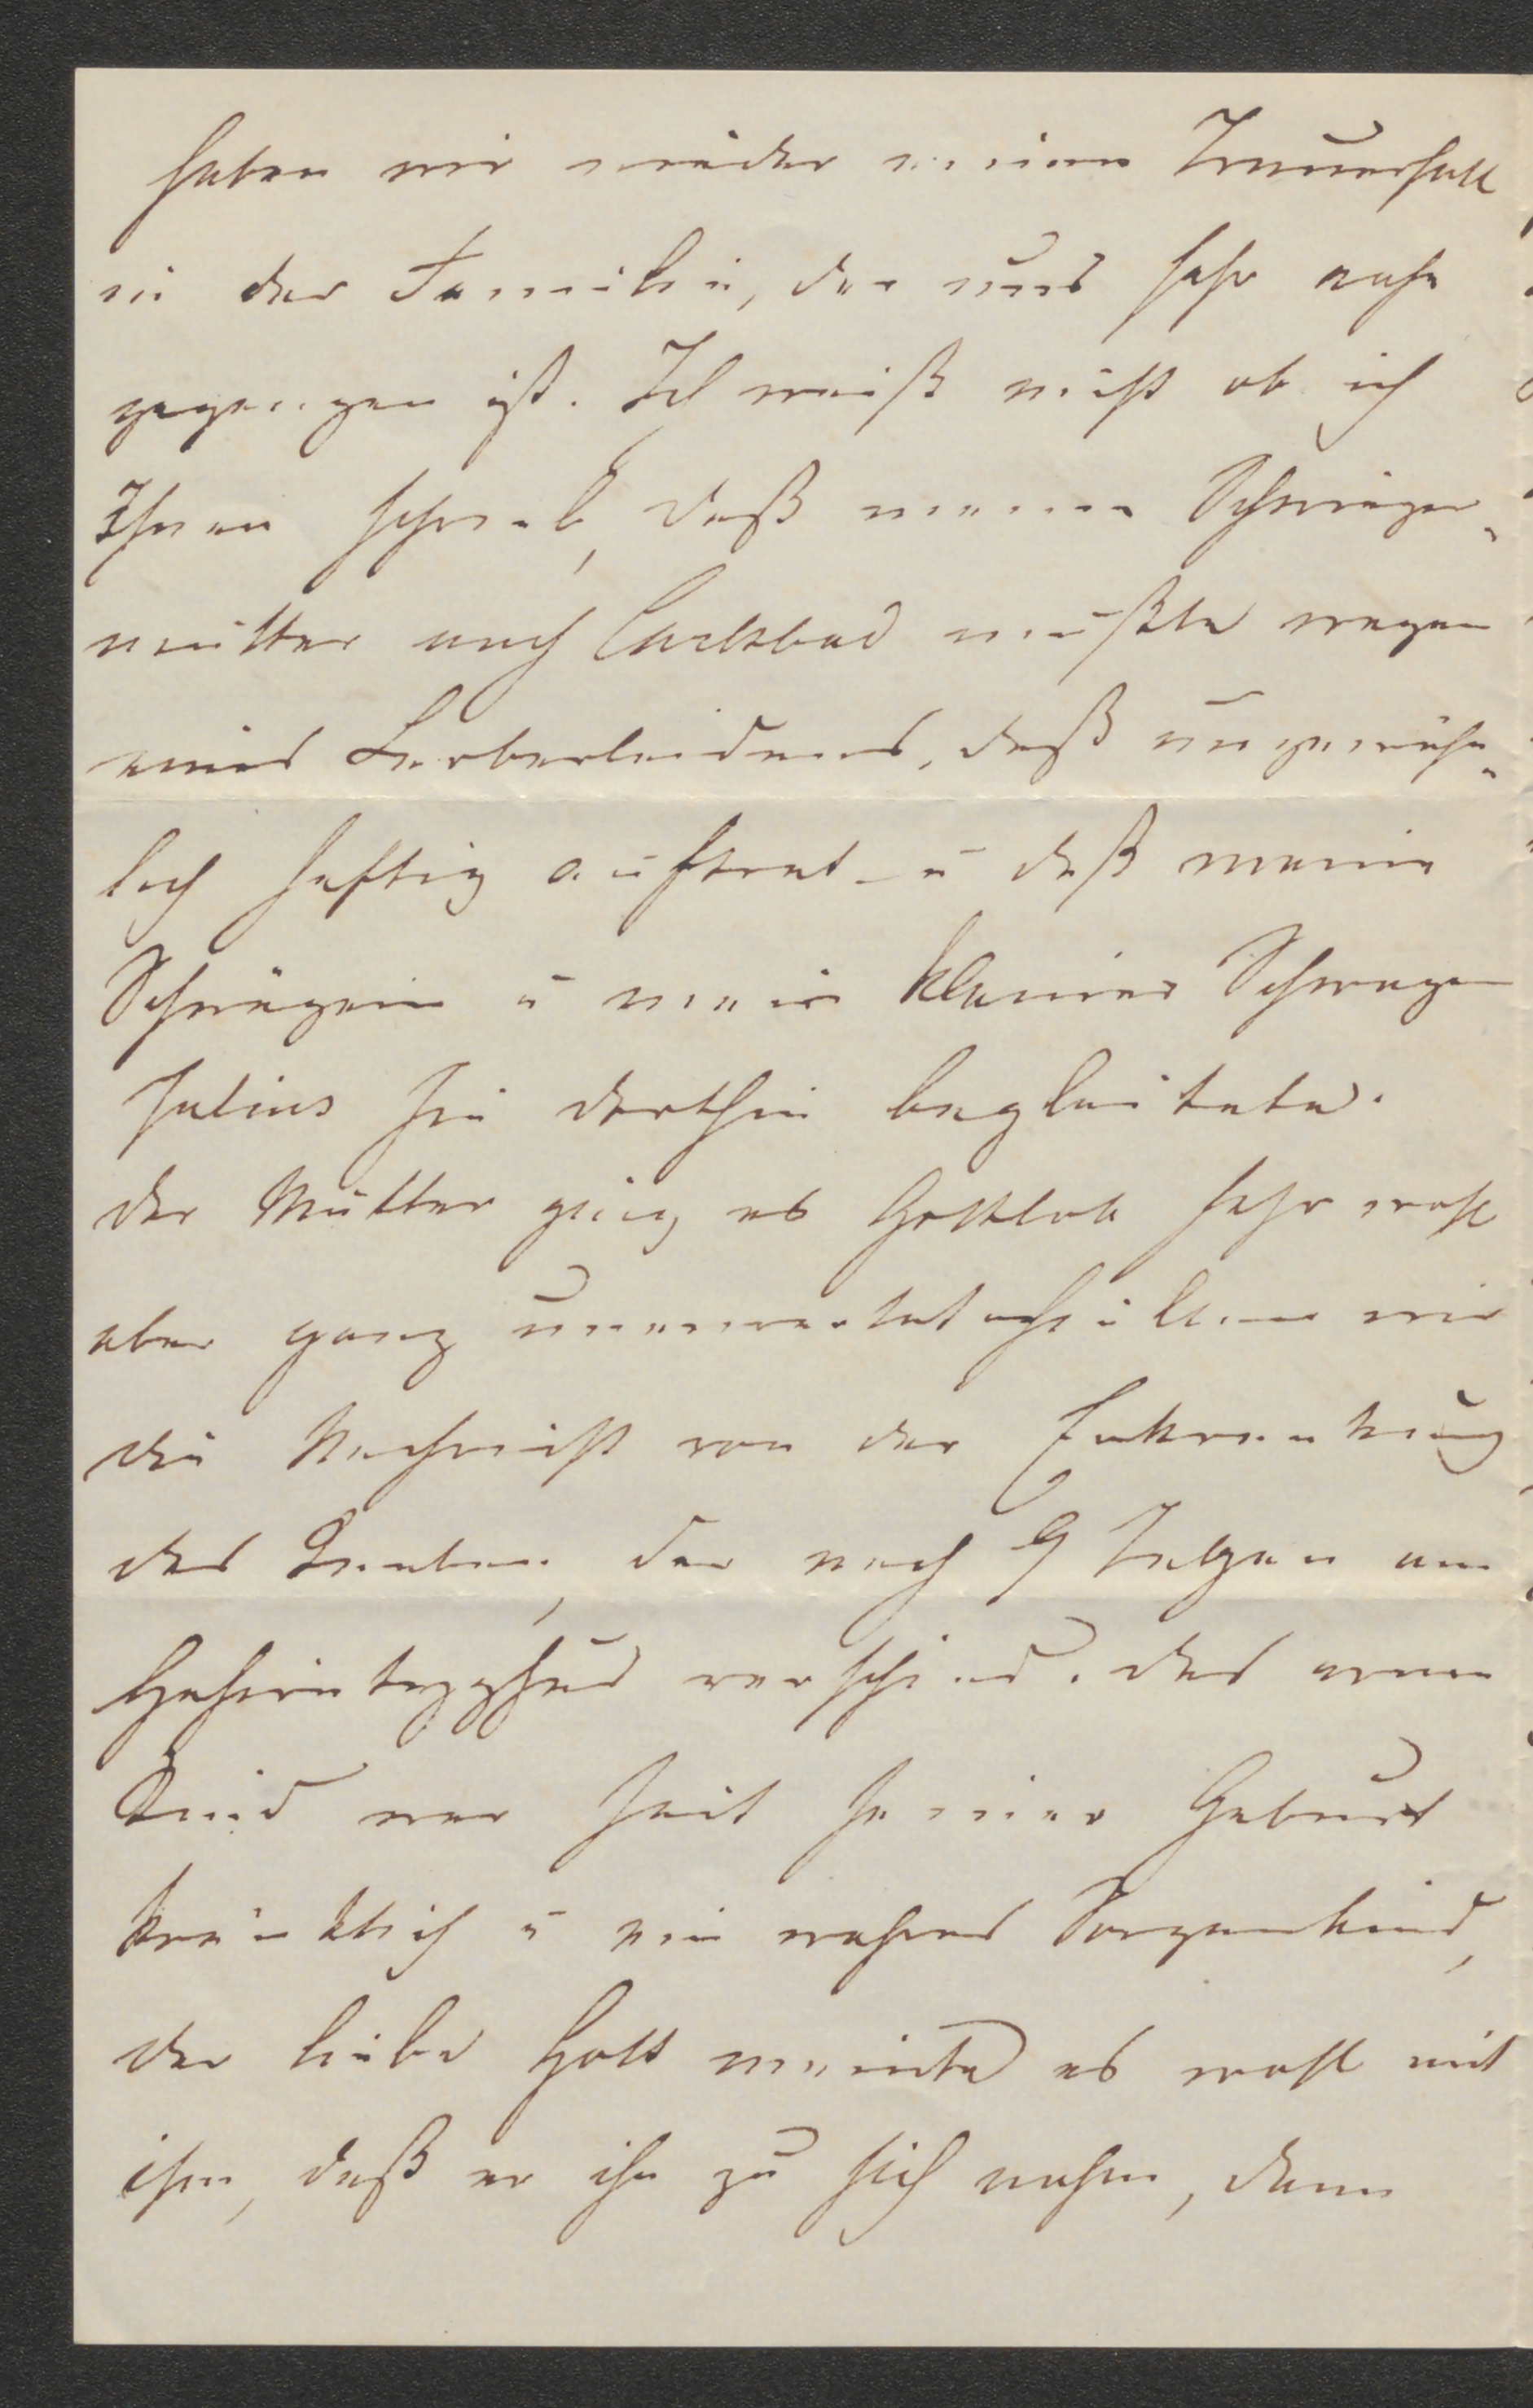 haben wir wieder einen Trauerfall
in der Familie, der uns sehr nahe
gegangen ist. Ich weiß nicht ob ich
Ihnen schrieb, daß meine Schwieger¬
mutter nach Carlsbad mußte wegen
eines Leberleidens, daß ungewöhn¬
lich heftig auftrat - u daß meine
Schwägerin u mein kleiner Schwager
Julius sie dorthin begleitete.
der Mutter ging es Gottlob sehr wohl
aber ganz unerwartet erhielten wir
die Nachricht von der Erkrankung
des Knaben, der nach 9 Tagen am
Gehirntyphus verschied. das arme
Kind war seit seiner Geburt
kränklich u ein wahres Sorgenkind,
der liebe Gott meinte es wohl mit
ihm, daß er ihn zu sich nahm, denn